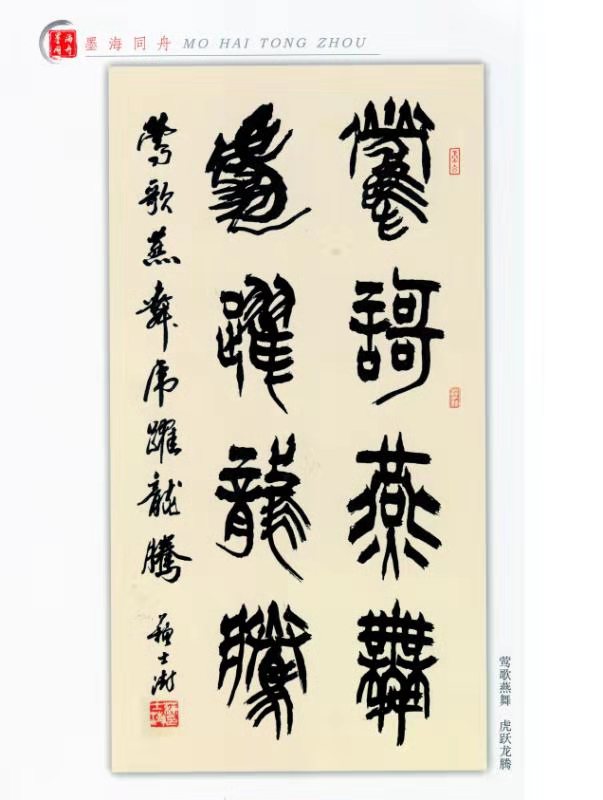 墨海同舟 MO HAI TONG ZHOU
鶯謌燕舞
虎躍龍騰
鶯歌燕舞虎躍龍騰
士澍
莺歌燕舞 虎跃龙腾